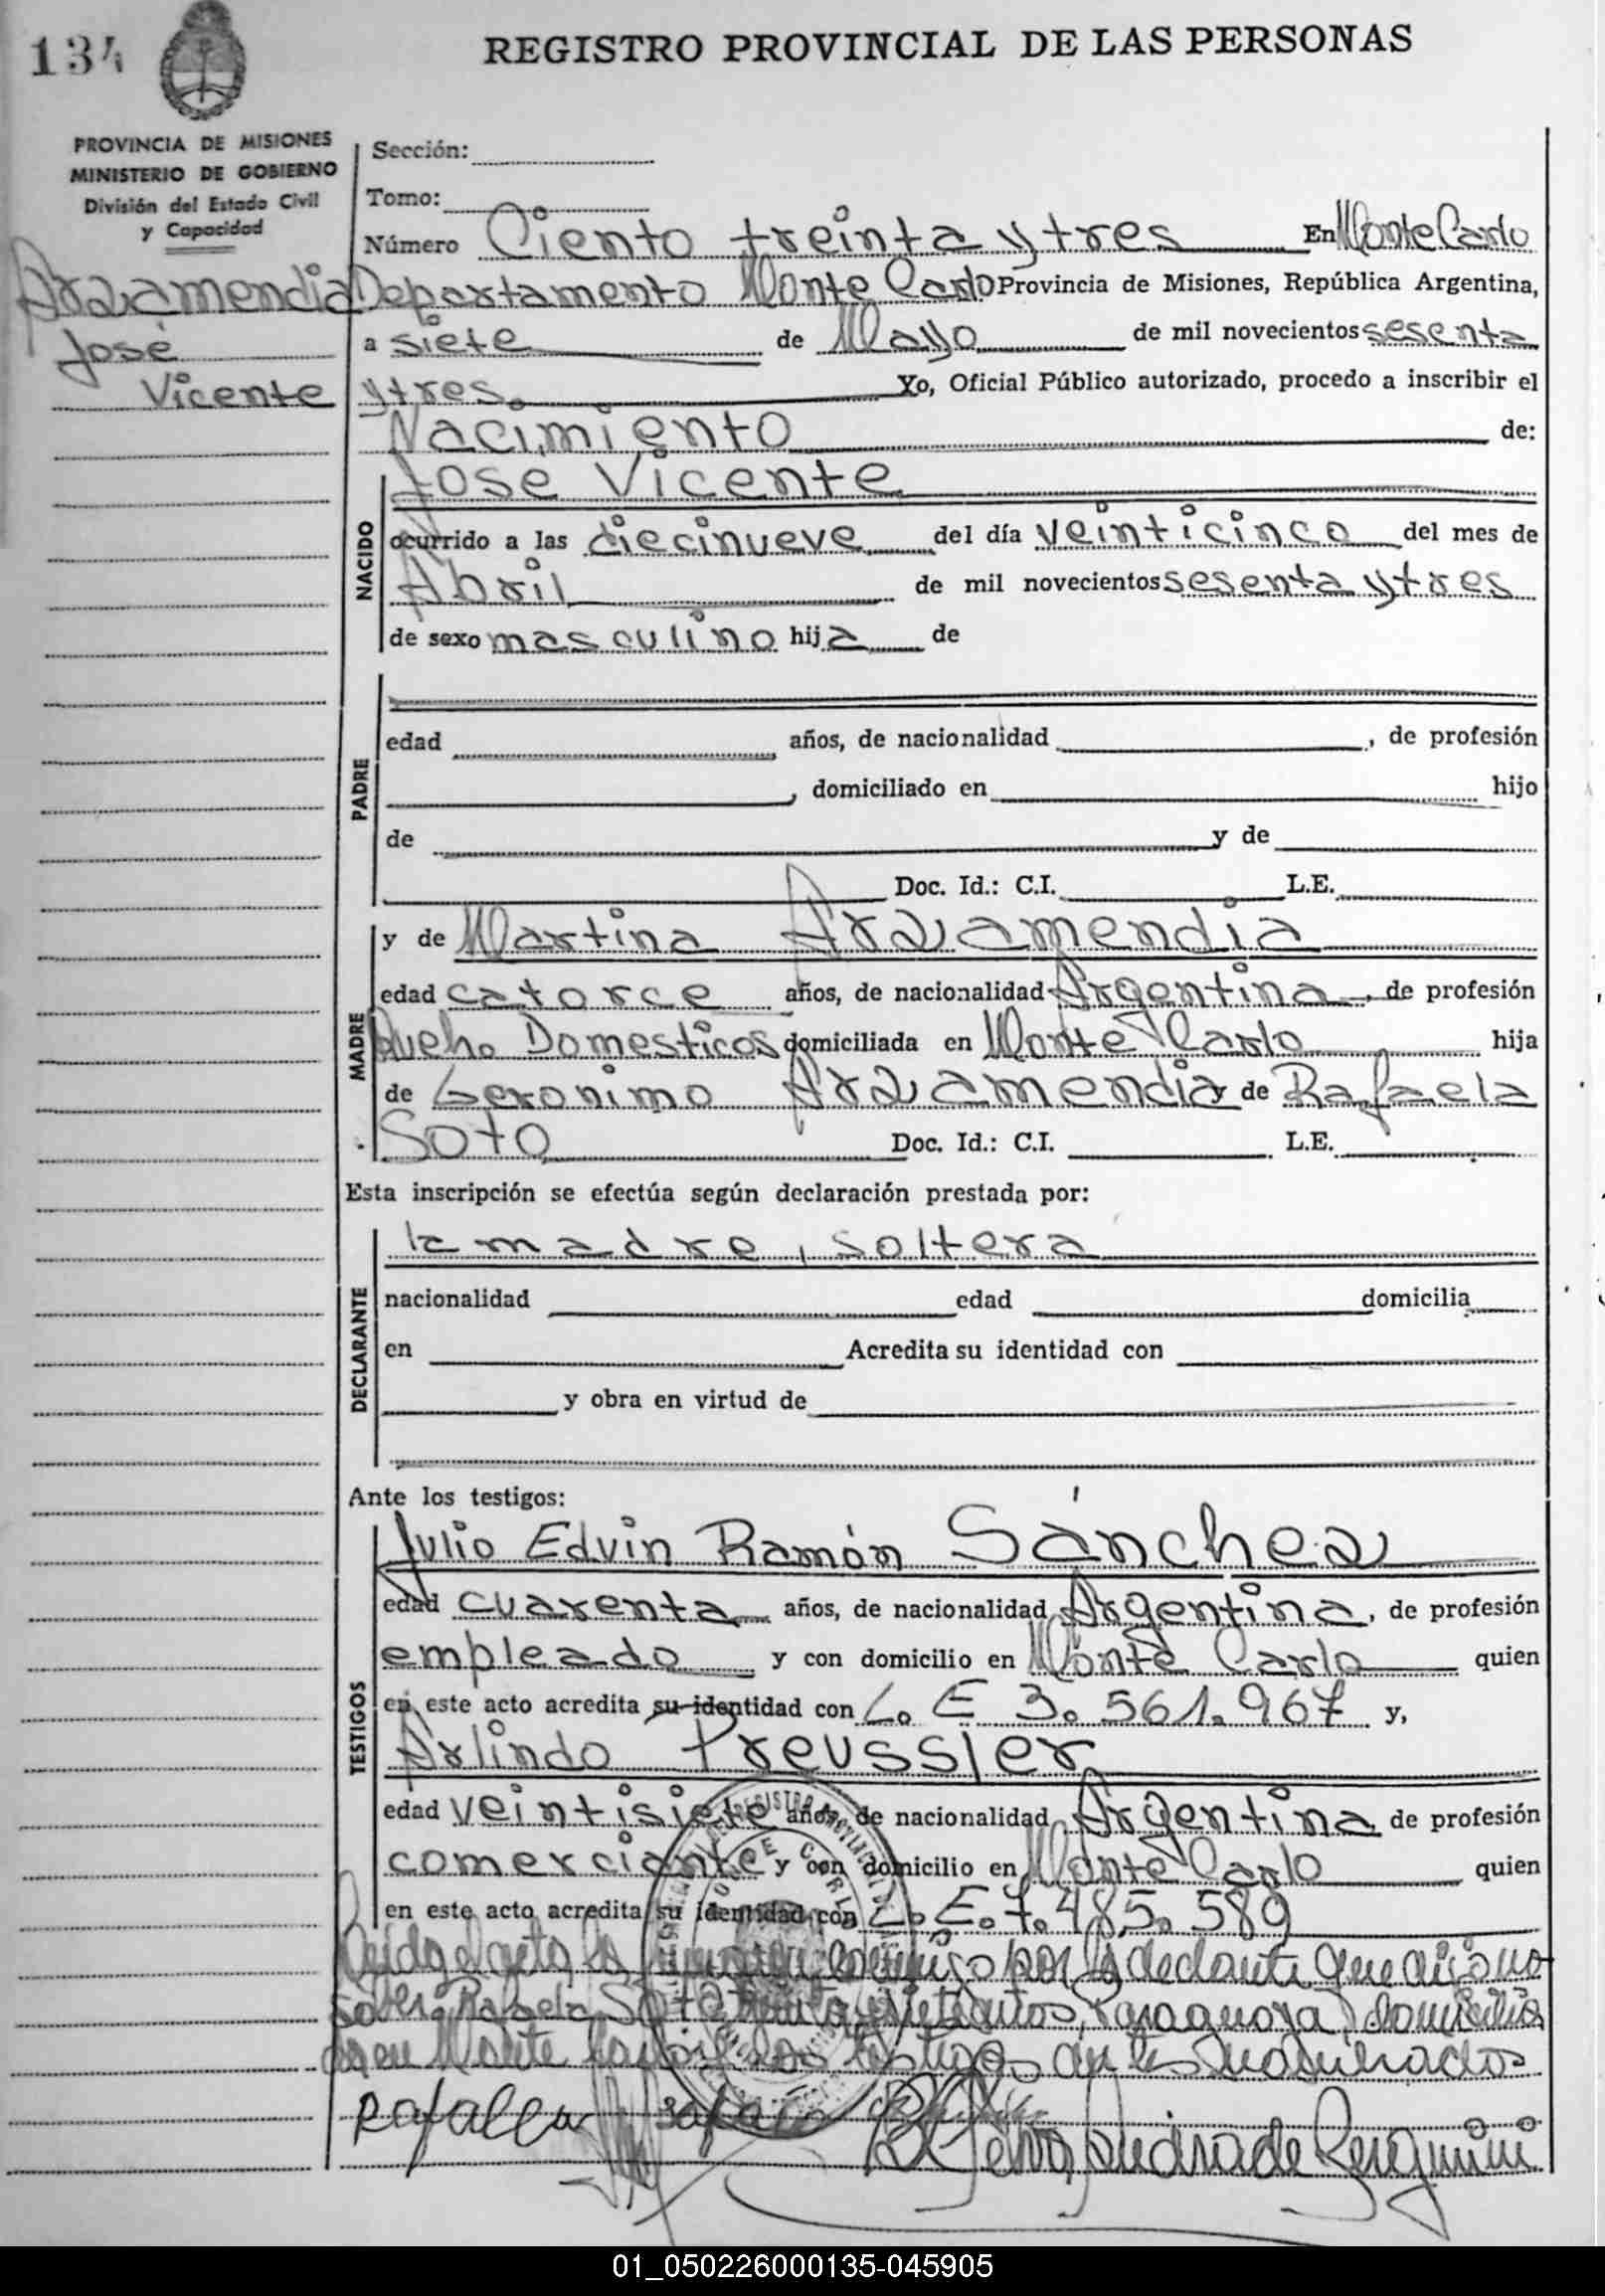 134
REGISTRO PROVINCIAL DE LAS PERSONAS
PROVINCIA DE MISIONES
MINISTERIO DE GOBIERNO
División del Estado Civil
y Capacidad
Arzamendia
José
Vicente
Sección:
Tomo:
Número Ciento treinta y tres En Monte Carlo
Departamento Monte Carlo Provincia de Misiones, República Argentina,
a siete de Mayo de mil novecientos sesenta
y tres. Yo, Oficial Público autorizado, procedo a inscribir el
Nacimiento de:
NACIDO
Jose Vicente
ocurrido a las diecinueve del día veinticinco del mes de
Abril de mil novecientos sesenta y tres
de sexo masculino hija de
PADRE
edad años, de nacionalidad , de profesión
, domiciliado en hijo
de y de
Doc. Id.: C.I. L.E.
MADRE
y de Martina Arzamendia
edad catorce años, de nacionalidad Argentina, de profesión
Queh. Domesticos domiciliada en Monte Carlo hija
de Geronimo Arzamendia y de Rafaela
Soto Doc. Id.: C.I. L.E.
Esta inscripción se efectúa según declaración prestada por:
DECLARANTE
la madre, soltera
nacionalidad edad domicilia
en Acredita su identidad con
y obra en virtud de
Ante los testigos:
TESTIGOS
Julio Edvin Ramón Sánchez
edad cuarenta años, de nacionalidad Argentina, de profesión
empleado y con domicilio en Monte Carlo quien
en este acto acredita su identidad con L. E 3. 561. 967 y,
Arlindo Preussler
edad veintisiete años, de nacionalidad Argentina de profesión
comerciante y con domicilio en Monte Carlo quien
en este acto acredita su identidad con L. E. 7. 485. 589
Leida el acta la conmigo por la que dijo no
saber Rafaela Soto treinta y siete años, Paraguaya, domicilia
da en Monte Carlo los testigos antes nombrados
01_050226000135-045905